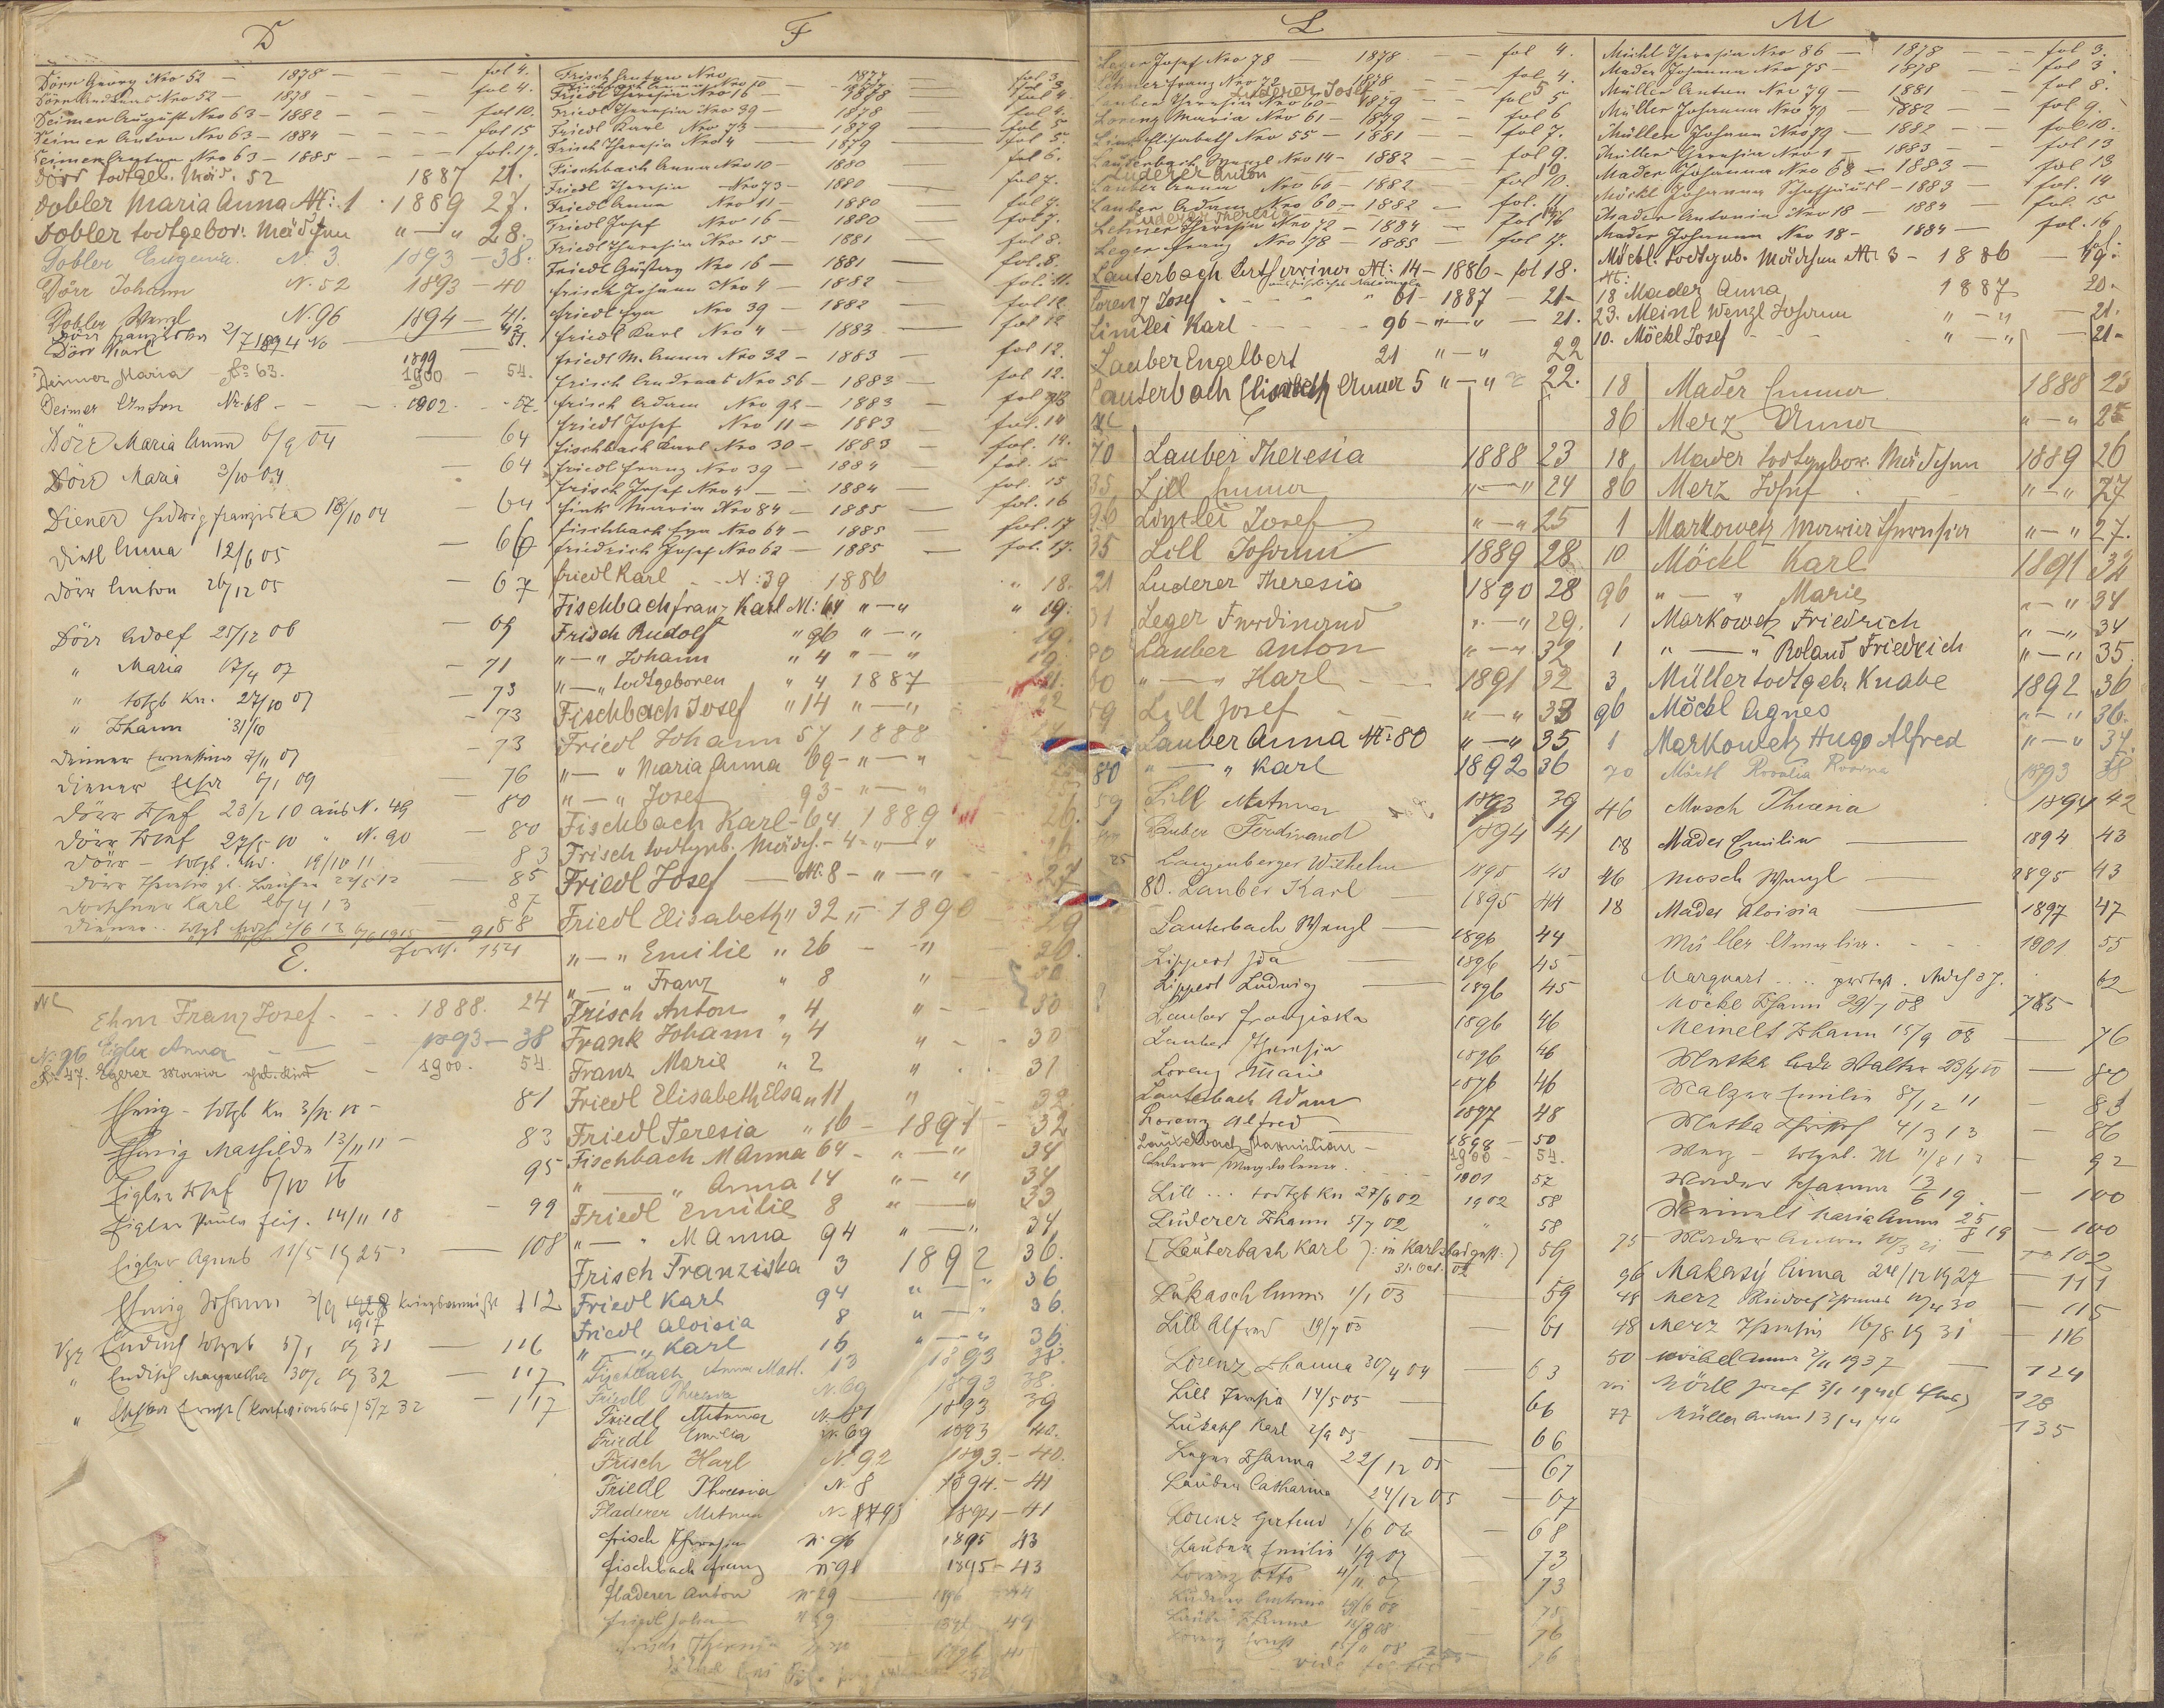 D
Dörr Georg Nro 52 — 1878 — fol 4.
Dörr Andreas Nro 52 — 1878 — fol 4.
Deimer August Nro 63 — 1882 — fol 10.
Deimer Anton Nro 63 — 1884 — fol 15
Deimer Anton Nro 63 — 1885 — fol. 17.
Dörr todtgeb. Mäd. 52 1887 21.
Dobler Maria Anna N: 1 · 1889 27.
Dobler todtgebor: Mädchen " — " 28.
Dobler Eugenia. N. 3. 1893 — 38.
Dörr Johann N. 52 1893 — 40
Dobler Wenzl N. 96 1894 — 41.
Dörr Franziska 2/7 1894 No 42
Dörr Karl 1899 51.
Deimer Maria No 63. 1900 — 54.
Deimer Anton Nr. 68 — 1902. — 57.
Dörr Maria Anna 6/9 04 — 64
Dörr Maria 3/10 04 — 64
Diener Hedwig Franziska 18/10 04 — 64
Dietl Anna 12/6 05 — 66
Dörr Anton 26/12 05 — 67
Dörr Adolf 25/12 06 — 69
" Maria 17/4 07 — 71
" totgb Kn. 27/10 07 — 73
" Johann 31/10 — 73
Deimer Ernestine 7/11 07 — 73
Diener 6/1 09 — 76
Dörr Josef 23/2 10 aus N. 49 — 80
Dörr Josef 27/5 10 " N. 90 — 80
Dörr — totgb. 19/10 11 83
Dörr Theresia 85
Karl 26/4 13 87
Diener 88
E.
Forts. 154
NC
Ehm Franz Josef - - 1888. 24
N. 96 Eigler Anna — 1893 — 38
N. 47. Egerer Maria — 1900. 54
Ehnig - totgb Kn 3/12 10 — 81
Ehnig Mathilde 13/11 11 — 83
Eigler Josef 6/10 16 95
Eigler Paula 14/11 18 — 99
Eigler Agnes 11/5 1925 — 108
Ehnig Johann 112
Endisch totgeb 5/1 1931 — 116
" Endisch Margaretha 30/1 1932 — 117
" Ernst (Konfessionslos) 5/7 32 — 117
F
Frisch Anton Nro 1877 fol 3
Fischbach Anna Nro 10 — 1877 fol 3.
Friedl Theresia Nro 16 — 1878 fol 4
Friedl Theresia Nro 39 — 1878 fol 4.
Friedl Karl Nro 73 — 1879 fol 5
Frisch Theresia Nro 4 — 1879 fol 5.
Fischbach Anna Nro 10 — 1880 fol 6.
Friedl Theresia Nro 73 — 1880 fol 7.
Friedl Anna Nro 11 — 1880 fol 7.
Friedl Josef Nro 16 — 1880 fol 7.
Friedl Theresia Nro 15 — 1881 fol 8.
Friedl Gustav Nro 16 — 1881 fol. 8.
Frisch Johann Nro 4 — 1882 fol. 11.
Friedl Eva Nro 39 — 1882 fol 12.
Friedl Karl Nro 4 — 1883 — fol 12
Friedl M. Anna Nro 32 — 1883 — fol 12.
Frisch Andreas Nro 56 — 1883 — fol 12.
Frisch Adam Nro 92 — 1883 — fol 13
Friedl Josef Nro 11 — 1883 — fol. 14
Fischbach Karl Nro 30 — 1883 — fol. 14.
Friedl Franz Nro 39 — 1884 fol. 15
Frisch Josef Nro 4 — 1884 — fol. 15
Fink Maria Nro 84 — 1885 — fol. 16
Fischbach Eva Nro 64 — 1885 — fol. 17
Friedrich Josef Nro 62 — 1885 — fol. 17.
Friedl Karl - - N: 39 1886 " 18.
Fischbach Franz Karl N: 64 " — " " 19.
Frisch Rudolf " 96 " — " 19.
" — " Johann " 4 " — " 19.
" — " todtgeboren " 4 1887 21.
Fischbach Josef " 14 " — " 22
Friedl Johann 57 1888
" — " Maria Anna 69 - " — "
" — " Josef 93 - " — " 25
Fischbach Karl - 64 1889 26.
Frisch todtgeb. Mädch. - 4 - " — " 26
Friedl Josef — N: 8 - " — " 27
Friedl Elisabeth " 32 " 1890 29
" — " Emilie " 26 - " 20.
" — " Franz " 8 " 30
Frisch Anton " 4 " - - 30
Frank Johann " 4 " - - 30
Franz Marie " 2 " - - 31
Friedl Elisabeth Elsa " 11 " 32
Friedl Teresia " 16 - 1891 - 32
Fischbach M Anna 64 - " — " 34
" — " Anna 14 " — " 34
Friedl Emilie 8 " — " 33
" — " M Anna 94 " — " 34
Frisch Franziska 3 1892 36.
Friedl Karl 94 " — " 36
Friedl Aloisia 8 " — " 36.
" — " Karl 16 " — " 36.
Fischbach Anna Mat. 13 1893 38.
Friedl Theresia N. 69 1893 38.
Friedl M Anna N. 81 1893 39
Friedl Emilia N. 69 1893 40.
Frisch Karl N. 92 1893. — 40.
Friedl Theresia N. 8 1894. — 41
Fladerer M Anna N. 93 1894 — 41
Frisch Theresia N. 96 1895 43
Fischbach Franz N. 91 1895 — 43
Fladerer Anton N. 29 1896 44
Friedl Johann N. 69 1896 44
Frisch Theresia 1896 45
L
Leger Josef Nro 78 1878 — fol 4.
Lehner Franz Nro 72 1878 — fol 4.
Luderer Josef 5
Lauber Theresia Nro 60 — 1879 — fol 5
Lorenz Maria Nro 61 — 1879 — fol 6
Elisabeth Nro 55 — 1881 — fol 7.
Lauterbach Wenzl Nro 14 — 1882 — fol 9.
Luderer Anton 10
Lauber Anna Nro 60 1882 — fol 10.
Lauber Adam Nro 60 — 1882 — fol. 11
Luderer Theresia 14
Lehner Theresia Nro 72 — 1884 — fol 16
Leger Franz Nro 78 — 1885 — fol 17.
Lauterbach Katherina N: 14 — 1886 — fol 18.
Lorenz Josef " 61 — 1887 — 21.
Limlei Karl - - - 96 — " — " — 21.
Lauber Engelbert 21 " — " 22
Lauterbach Elisabeth Anna 5 " — " 22.
NC
70 Lauber Theresia 1888 23
35 Lill Emma " — " 24
96 Limlei Josef " — " 25
35 Lill Johann 1889 28
21 Luderer Theresia 1890 28
31 Leger Ferdinand " — " 29.
80 Lauber Anton " — " 32
60 " — " Karl 1891 32
59 Lill Josef " — " 33
Lauber Anna N: 80 " — " 35
80 " — " Karl 1892 36
59 Lill M Anna 1893 39
Lauber Ferdinand 1894 41
25 Langenberger Wilhelm 1895 43
80. Lauber Karl 1895 44
Lauterbach Wenzl — 1896 44
Lippert Ida — 1896 45
Lippert Ludwig — 1896 45
Lauber Franziska 1896 46
Lauber Theresia 1896 46
Lorenz Marie 1896 46
Lauterbach Adam 1897 48
Lorenz Alfred 1898 — 50
Lauterbach Maximilian — 1900 — 54.
Lederer Magdalena. 1901 57
Lill ... todtgb Kn 27/6 02 1902 58
Luderer Johann 5/7 02 " 58
[Lauterbach Karl ): in Karlsbad gest: ) 59
31. Oct. 02
Lukasch Anna 1/1 03 — 59
Lill Alfred 19/7 03 — 61
Lorenz Johanna 30/4 04 — 63
Lill Theresia 14/5 05 — 66
Lukasch Karl 2/9 05 — 66
Leger Johanna 22/12 05 — 67
Lauber Catharina 24/12 05 — 67
Lorenz Gertrud 1/6 06 — 68
Lauber Emilie 1/9 07 — 73
Lorenz Otto 4/11 07 — 73
Luderer 19/6 08 — 75
Lauber Johanna 18/8 08 — 76
Lorenz 15/11 08 76
M
Michl Theresia Nro 86 — 1878 — fol 3.
Mader Johanna Nro 75 — 1878 — fol 3.
Müller Anton Nro 79 — 1881 — fol 8.
Müller Johanna Nro 79 — 1882 — fol 9.
Müller Johann Nro 79 — 1882 — fol 10.
Müller Theresia Nro 1 — 1883 — fol 13
Mader Johanna Nro 68 — 1883 — fol 13
Möckl Johanna — 1883 — fol. 14
Mader Antonia Nro 18 — 1884 — fol. 15
Mader Johanna Nro 18 — 1884 — fol. 16
Möckl. todtgeb. Mädchen N: 3 — 1886 — fol. 19.
N:
18 Mader Anna 1887 20.
23. Meinl Wenzl Johann " — " — 21.
10. Möckl Josef - - - " — " — 21.
18 Mader Emma 1888 23
86 Merz Anna " — " 25
18 Mader todtgebor. Mädchen 1889 26
86 Merz Josef " — " 27
1 Markowetz Maria Theresia " — " 27.
10 Möckl Karl 1891 32
96 " — " Marie " — " 34
1 Markowetz Friedrich " — " 34
1 " — " Roland Friedrich " — " 35.
3 Müller todtgeb. Knabe 1892 36
96 Möckl Agnes " — " 36.
1 Markowetz Hugo Alfred " — " 37.
70 Rosalia 1893 38
46 Mosch Theresia 1894 42
18 Mader Emilia — 1894 43
46 Mosch Wenzl — 1895 43
18 Mader Aloisia — 1897 47
Müller Amalia. - - - 1901 55
Marquart 62
Möckl Johann 29/7 08 75
Meinelt Johann 15/9 08 — 76
Matka Walter 23/4 10 — 80
Malzer Emilie 8/12 11 — 83
Matka 4/3 13 — 86
Merz - totgeb. M 11/8 13 — 92
Mader Johanna 13/6 19. — 100
Meinelt Maria Anna 25/8 19 — 100
75 Mader Anton 10/3 21 — 102
96 Makasy Anna 24/12 1927 — 111
48 Merz Rudolf 30 — 115
48 Merz Theresia 16/8 1931 — 116
50 Anna 2/11 1937 — 124
Möckl Josef 3/1 194 128
77 Müller Anna 135